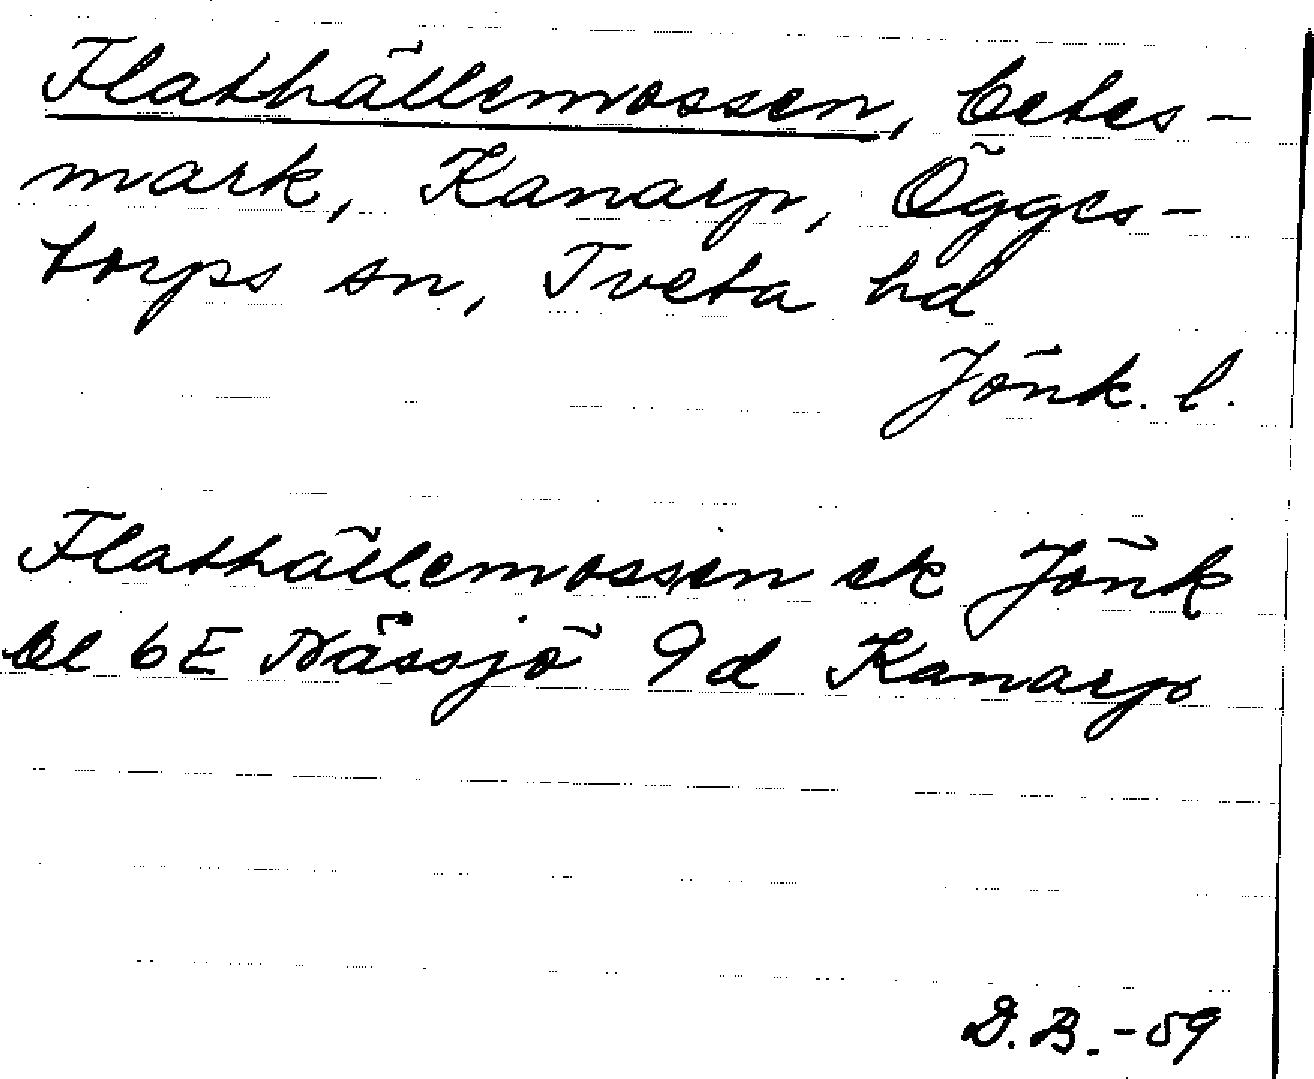 Flathällemossen, betes-
mark, Kanarp, Ögges-
torps sn, Tveta hd
Jönk. l.
Flathällemossen ek Jönk
bl 6E Nässjö 9d Kanarp
D.B.-59